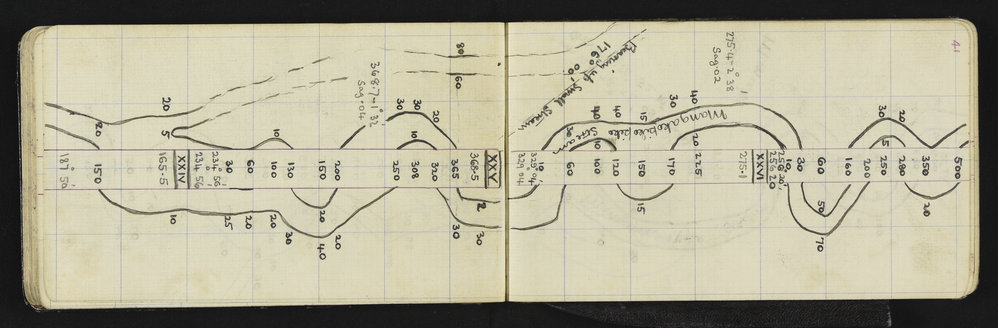 41
80
60
20
20
5
187° 50'
150
165·5
XXIV
234° 56'
234 56
30
60
10
100
130
150
200
10
25
20
20
30
20
40
20
368·7 - 1° 32'
Sag·04
30
30
20
10
250
308
320
365
368·5
XXV
2
30
30
Bearing up small stream
176° 00'
329° 04'
329 04
10
30
60
40
100
40
120
15
150
30
170
40
20
225
15
Mangakopikopiko
Stream
275·4 - 2° 38'
Sag·02
275·1
XXVI
256° 20'
256 20
10
30
60
160
200
250
280
350
500
30
20
15
50
70
20